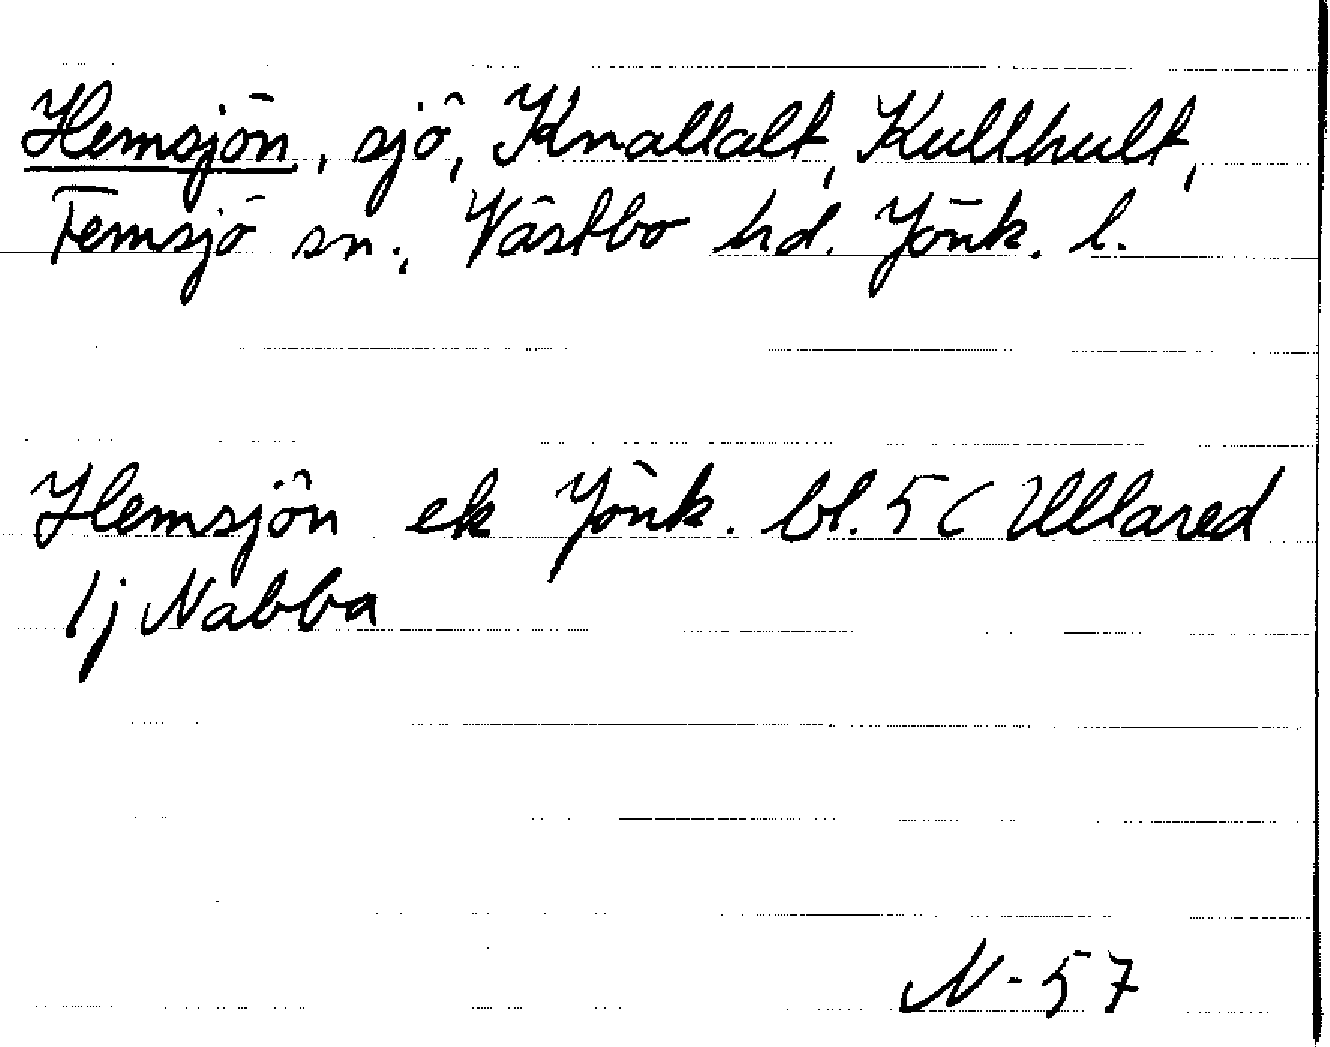 Hemsjön, sjö, Knallalt, Kullhult,
Femsjö sn., Västbo hd. Jönk. l.
Hemsjön ek Jönk. bl. 5C Ullared
1j Nabba
N-57